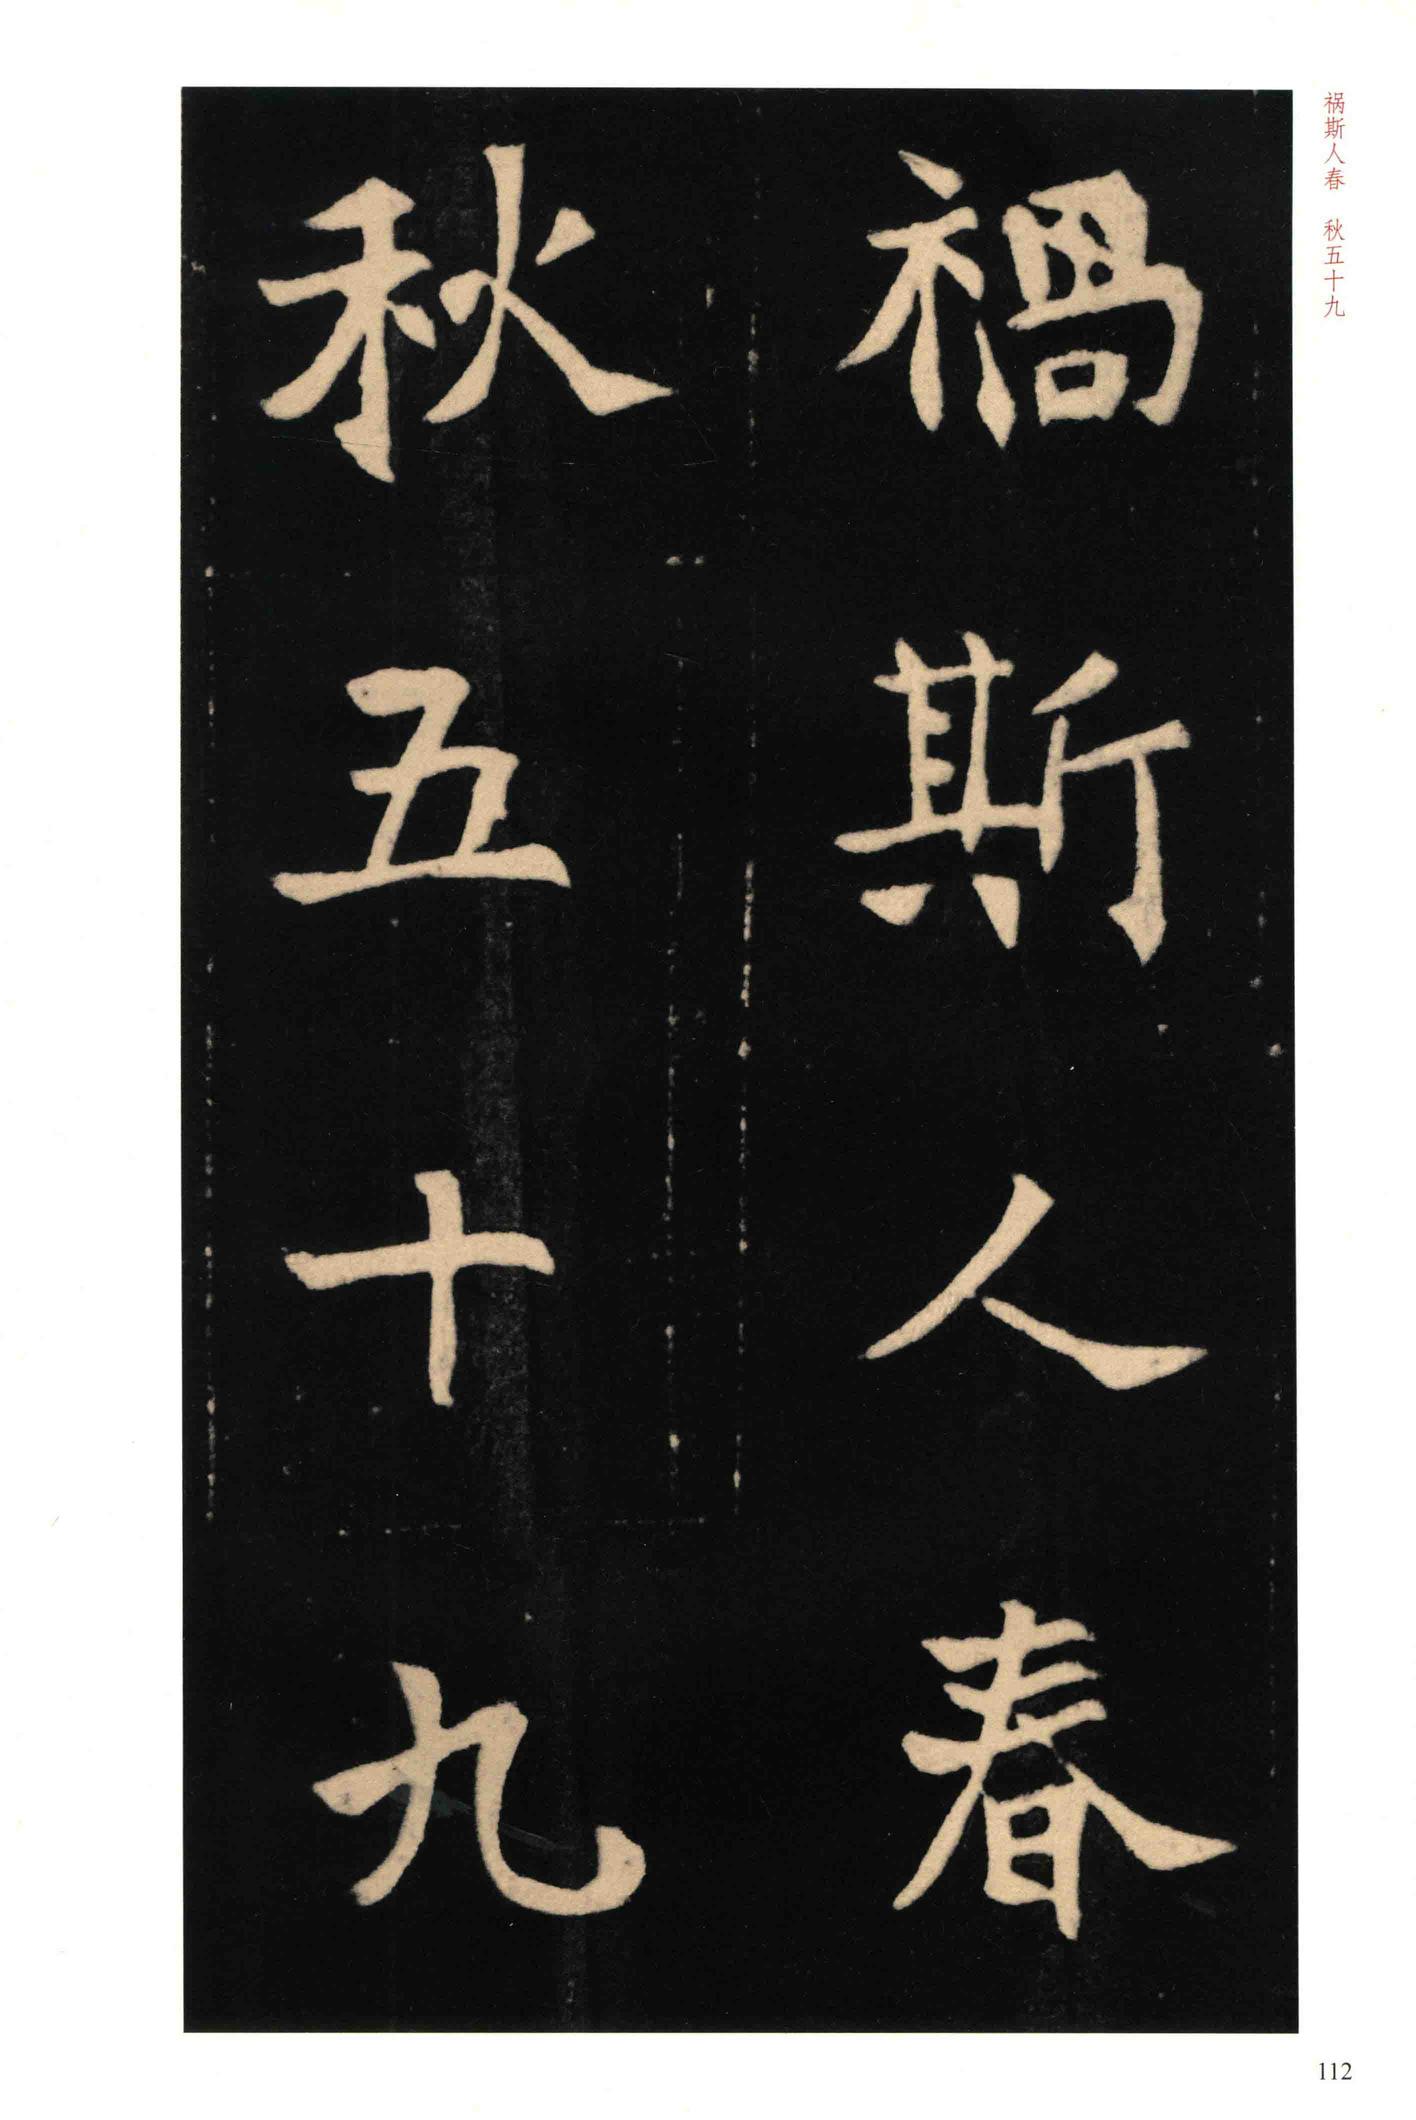 祸斯人春 秋五十九
禍斯人春
秋五十九
112